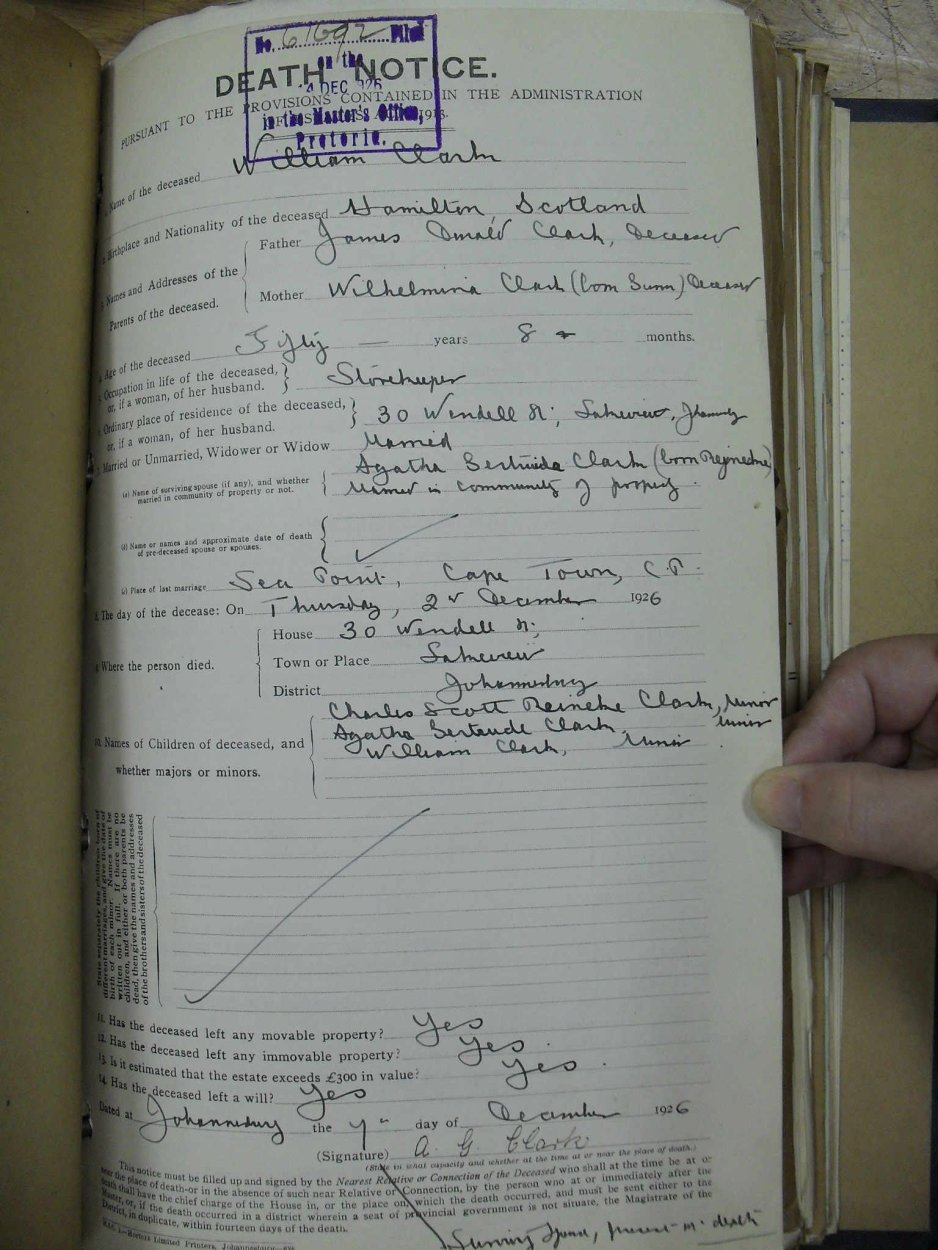 No. 61692 Filed
on the
DEC 1926
in the Master's Office,
Pretoria.
DEATH NOTICE.
PURSUANT TO THE PROVISIONS CONTAINED IN THE ADMINISTRATION
1913.
Name of the deceased William Clark
Birthplace and Nationality of the deceased Hamilton, Scotland
Names and Addresses of the Parents of the deceased.
Father James Donald Clark, Deceased
Mother Wilhelmina Clark (born Gunn) Deceased
Age of the deceased Fifty — years 8 months.
Occupation in life of the deceased, or, if a woman, of her husband. Storekeeper
Ordinary place of residence of the deceased, or, if a woman, of her husband. 30 Wendell St; Lakeview, Johannesburg
Married or Unmarried, Widower or Widow Married
(a) Name of surviving spouse (if any), and whether married in community of property or not. Agatha Gertruida Clark (born Reinecke)
Married in community of property.
(b) Name or names and approximate date of death of pre-deceased spouse or spouses.
(c) Place of last marriage Sea Point, Cape Town, C.P.
The day of the decease: On Thursday, 2nd December 1926
Where the person died.
House 30 Wendell St;
Town or Place Lakeview
District Johannesburg
10. Names of Children of deceased, and whether majors or minors.
Charles Scott Reineke Clark, Minor
Agatha Gertrude Clark, Minor
William Clark, Minor
State separately the children born of different marriages, and give the date of birth of each minor. Names must be written out in full. If there are no children, and either or both parents be dead, then give the names and addresses of the brothers and sisters of the deceased
11. Has the deceased left any movable property? Yes
12. Has the deceased left any immovable property? Yes.
13. Is it estimated that the estate exceeds £300 in value? Yes.
14. Has the deceased left a will? Yes
Dated at Johannesburg the 7th day of December 1926
(Signature) A. G. Clark
(State in what capacity and whether at the time at or near the place of death.)
This notice must be filled up and signed by the Nearest Relative or Connection of the Deceased who shall at the time be at or
near the place of death-or in the absence of such near Relative or Connection, by the person who at or immediately after the
death shall have the chief charge of the House in, or the place on, which the death occurred, and must be sent either to the
Master, or, if the death occurred in a district wherein a seat of provincial government is not situate, the Magistrate of the
District, in duplicate, within fourteen days of the death.
Surviving Spouse, present at death
Horters Limited Printers, Johannesburg